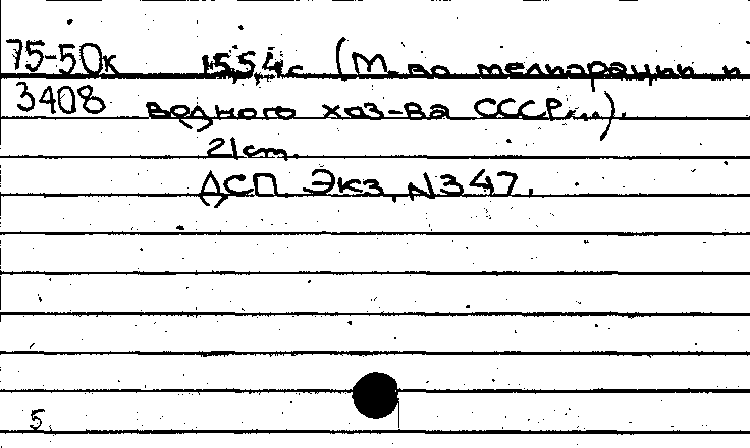 75-50к 1554с. (М-во мелиорации и
3408 водного хоз-ва СССР...).
21 cm.
ДСП. Экз. N 347.
5